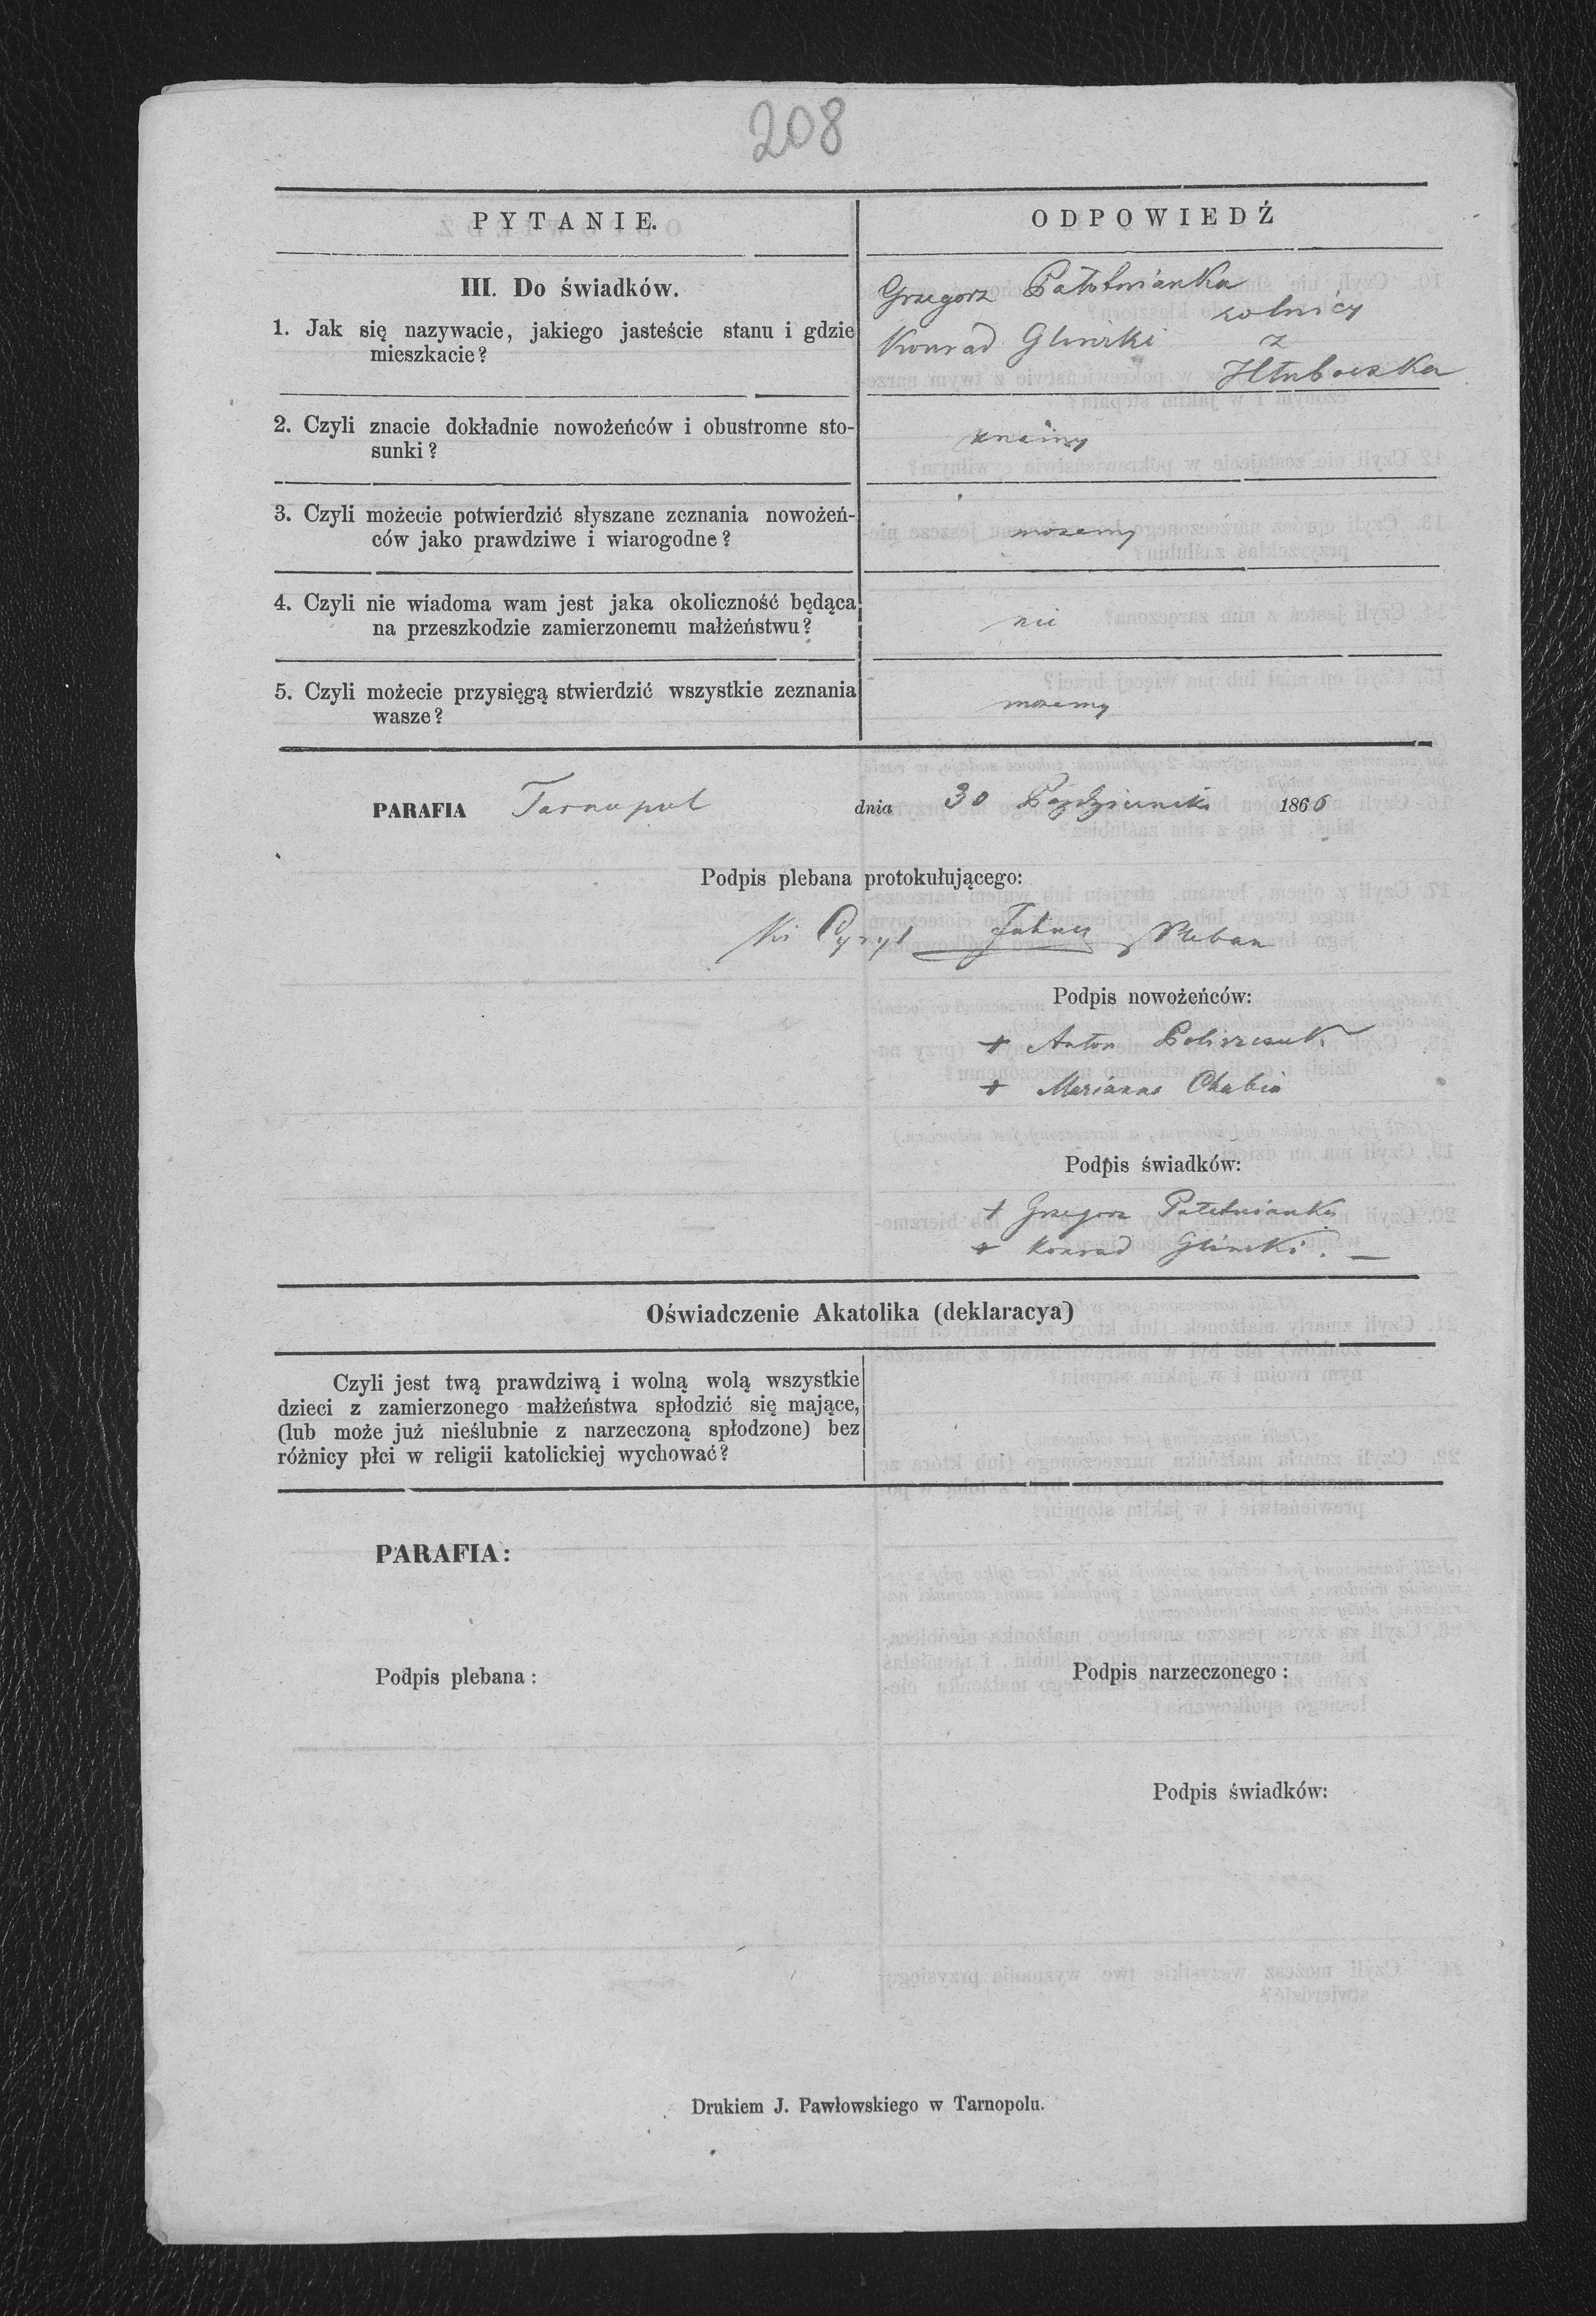 208
PYTANIE.
ODPOWIEDŹ
III. Do świadków.
1. Jak się nazywacie, jakiego jasteście stanu i gdzie
mieszkacie?
Grzegorz
rolnicy
Konrad Glinski z
2. Czyli znacie dokładnie nowożeńców i obustronne sto-
sunki?
znamy
3. Czyli możecie potwierdzić słyszane zeznania nowożeń-
ców jako prawdziwe i wiarogodne?
mozemy
4. Czyli nie wiadoma wam jest jaka okoliczność będąca
na przeszkodzie zamierzonemu małżeństwu?
nie
5. Czyli możecie przysięgą stwierdzić wszystkie zeznania
wasze?
mozemy
PARAFIA Tarnopol dnia 30 Października 1866
Podpis plebana protokułującego:
Cyryl Pleban
Podpis nowożeńców:
+ Anton Poliszczuk
+ Marianna Chabia
Podpis świadków:
+ Grzegorz
+ Konrad Glinski. —
Oświadczenie Akatolika (deklaracya)
Czyli jest twą prawdziwą i wolną wolą wszystkie
dzieci z zamierzonego małżeństwa spłodzić się mające,
(lub może już nieślubnie z narzeczoną spłodzone) bez
różnicy płci w religii katolickiej wychować?
PARAFIA:
Podpis plebana:
Podpis narzeczonego:
Podpis świadków:
Drukiem J. Pawłowskiego w Tarnopolu.